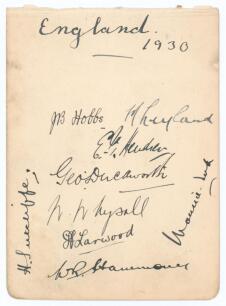 England.
1930
JB Hobbs
M Leyland
E. Hendren
Geo Duckworth
W W Wysall
H Larwood
WR Hammond
H Sutcliffe.
Maurice